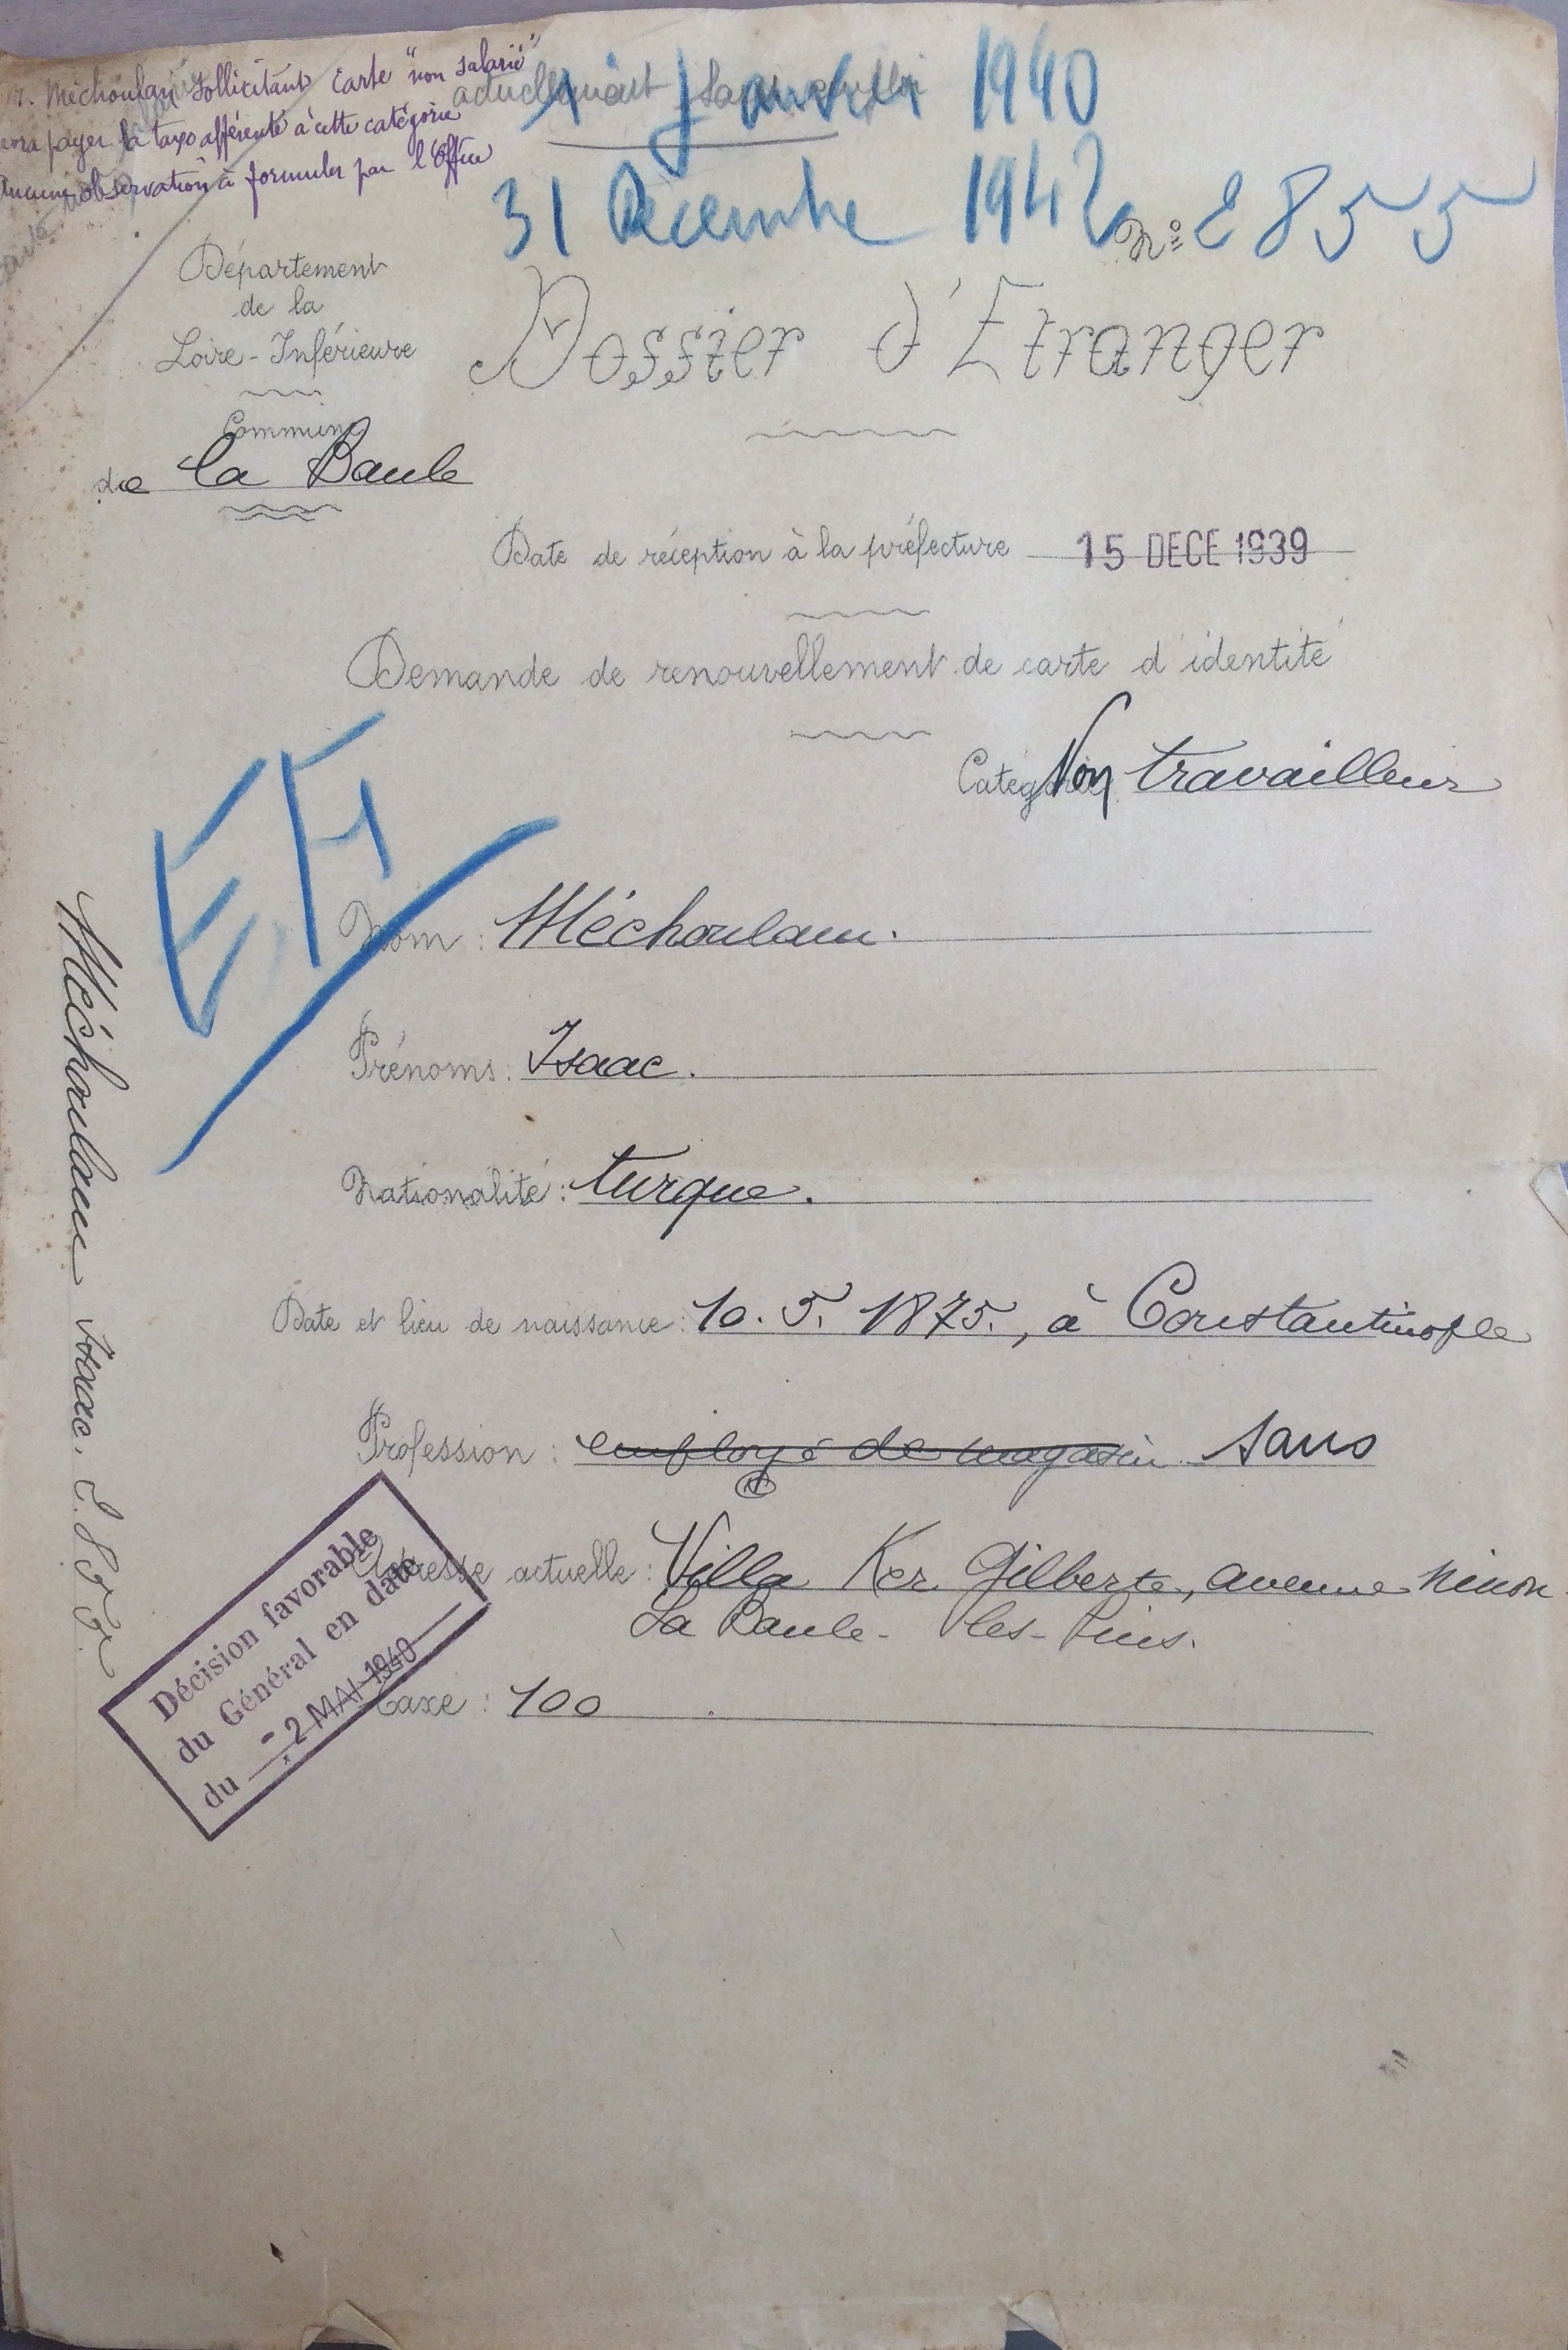 M. Méchoulam sollicitant carte "non salarié"
payer la taxe afférente à cette catégorie
Aucune observation à formuler par l'Office
actuellement sans emploi
1 Janvier 1940
31 Décembre 1942
N° 2855
Département
de la
Loire-Inférieure
Commune
de La Baule
Dossier d'Etranger
Date de réception à la préfecture 15 DECE 1939
Demande de renouvellement de carte d'identité
Catégorie Non travailleur
Nom : Méchoulam.
Prénoms : Isaac.
Nationalité : turque.
Date et lieu de naissance : 10. 5. 1875., à Constantinople
Profession : employé de magasin sans
Adresse actuelle : Villa Ker Gilberte, avenue Ninon
La Baule-les-Pins.
Taxe : 100
Décision favorable
du Général en date
du - 2 MAI 1940
Méchoulam Isaac. 2.855.